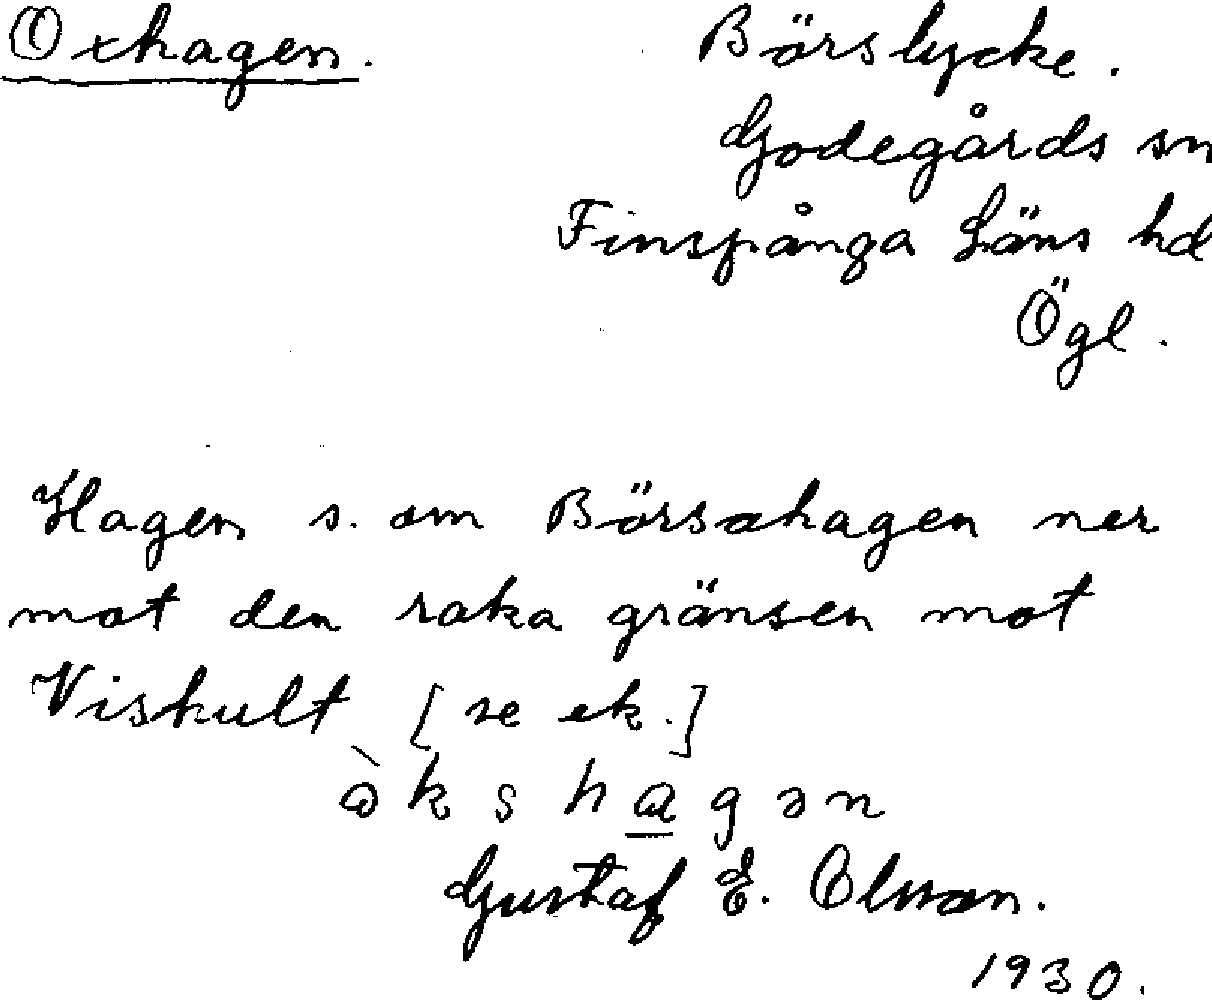 Oxhagen. Börslycke.
Godegårds sn
Finspånga Läns hd
Ögl.
Hagen s. om Börsahagen ner
mot den raka gränsen mot
Viskult [se ek.]
Gustaf E. Olsson.
1930.